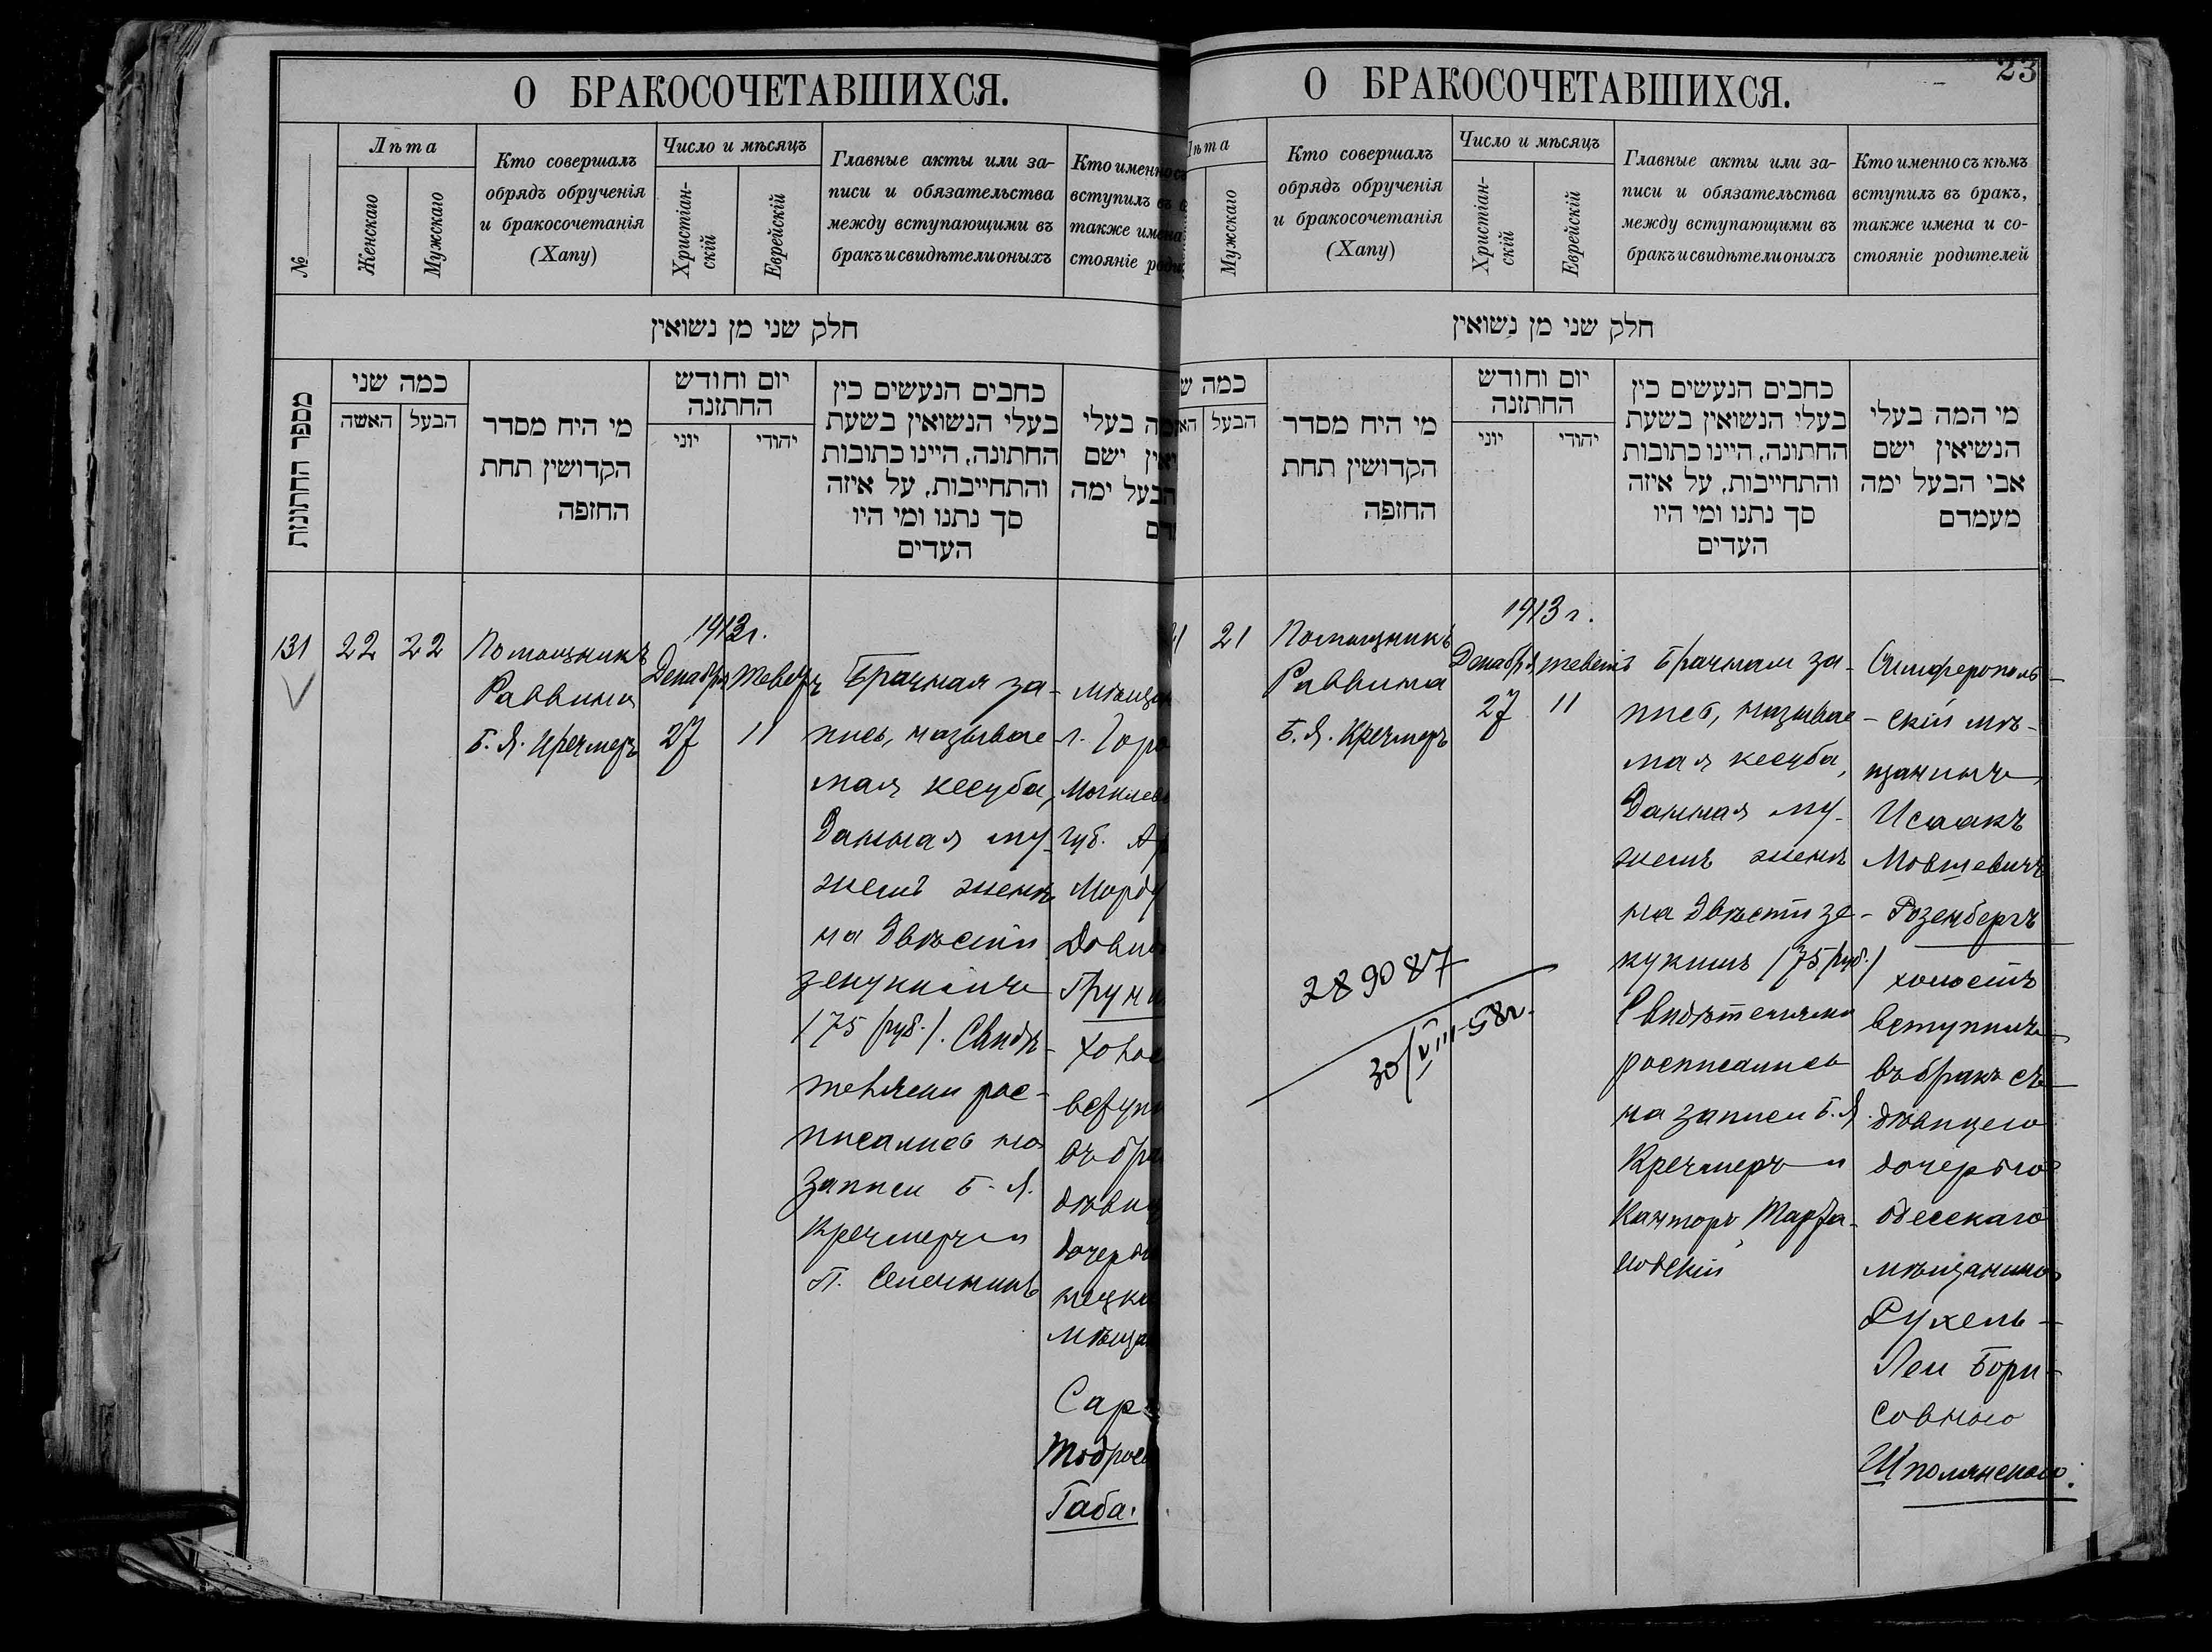 О БРАКОСОЧЕТАВШИХСЯ.
№
Лѣта
Женскаго
Мужскаго
Кто совершалъ
обрядъ обрученія
и бракосочетанія
(Хапу)
Число и мѣсяцъ
Христіан-
скій
Еврейскій
Главные акты или за-
писи и обязательства
между вступающими въ
бракъ и свидѣтели оныхъ
Кто именно съ
вступилъ въ б
также имена
стояніе роди
חלק שני מן נשואין
מספר החתונות
כמה שני
האשה
הבעל
מי היח מסדר
הקדושין תחת
החזפה
יום וחודש
החתזנה
יוני
יהודי
כחבים הנעשים כין
בעלי הנשואין בשעת
החתונה, היינו כתובות
והתחייבות, על איזה
סך נתנו ומי היו
העדים
מה בעלי
יאין ישם
הבעל ימה
דם
131
22
22
Помощникъ
Раввина
Б. Я. Кречмеръ
1913г.
Декабря
27
Теветъ
11
Брачная за-
пись, называе-
мая кесуба,
Данная му-
жемъ женѣ
на двѣсти
зекукимъ
(75 руб.). Свидѣ-
телями рос-
писались на
записи Б. Я.
Кречмеръ и
мѣщан
г. Горо
Могилев
губ.
Морду
Довид
Грун
холос
вступи
въ бра
дѣвиц
дочерь
мѣща
Сар
Тодрос
Габа.
23
О БРАКОСОЧЕТАВШИХСЯ.
Лѣта
Мужскаго
Кто совершалъ
обрядъ обрученія
и бракосочетанія
(Хапу)
Число и мѣсяцъ
Христіан-
скій
Еврейскій
Главные акты или за-
писи и обязательства
между вступающими въ
бракъ и свидѣтели оныхъ
Кто именно съ кѣмъ
вступилъ въ бракъ,
также имена и со-
стояніе родителей
חלק שני מן נשואין
כמה ש
הא
הבעל
מי היח מסדר
הקדושין תחת
החזפה
יום וחודש
החתזנה
יוני
יהודי
כחבים הנעשים כין
בעלי הנשואין בשעת
החתונה, היינו כתובות
והתחייבות, על איזה
סך נתנו ומי היו
העדים
מי המה בעלי
הנשיאין ישם
אבי הבעל ימה
מעמדם
21
Помощникъ
Раввина
Б. Я. Кречмеръ
1913 г.
Декабря
27
теветъ
11
Брачная за-
пись, называе-
мая кесуба,
Данная му-
жемъ женѣ
на двѣсти зе-
кукимъ (75 руб.)
Свидѣтелями
росписались
на записи Б. Я.
Кречмеръ и
Канторъ
Симферополь-
скій мѣ-
щанинъ
Исаакъ
Мовшевичъ
Розенбергъ
холостъ
вступилъ
въ бракъ съ
дѣвицею
дочерью
Одесскаго
мѣщанина
Рухель-
Леи Бори-
совною
Шполянскою.
289087
30/VIII-58г.